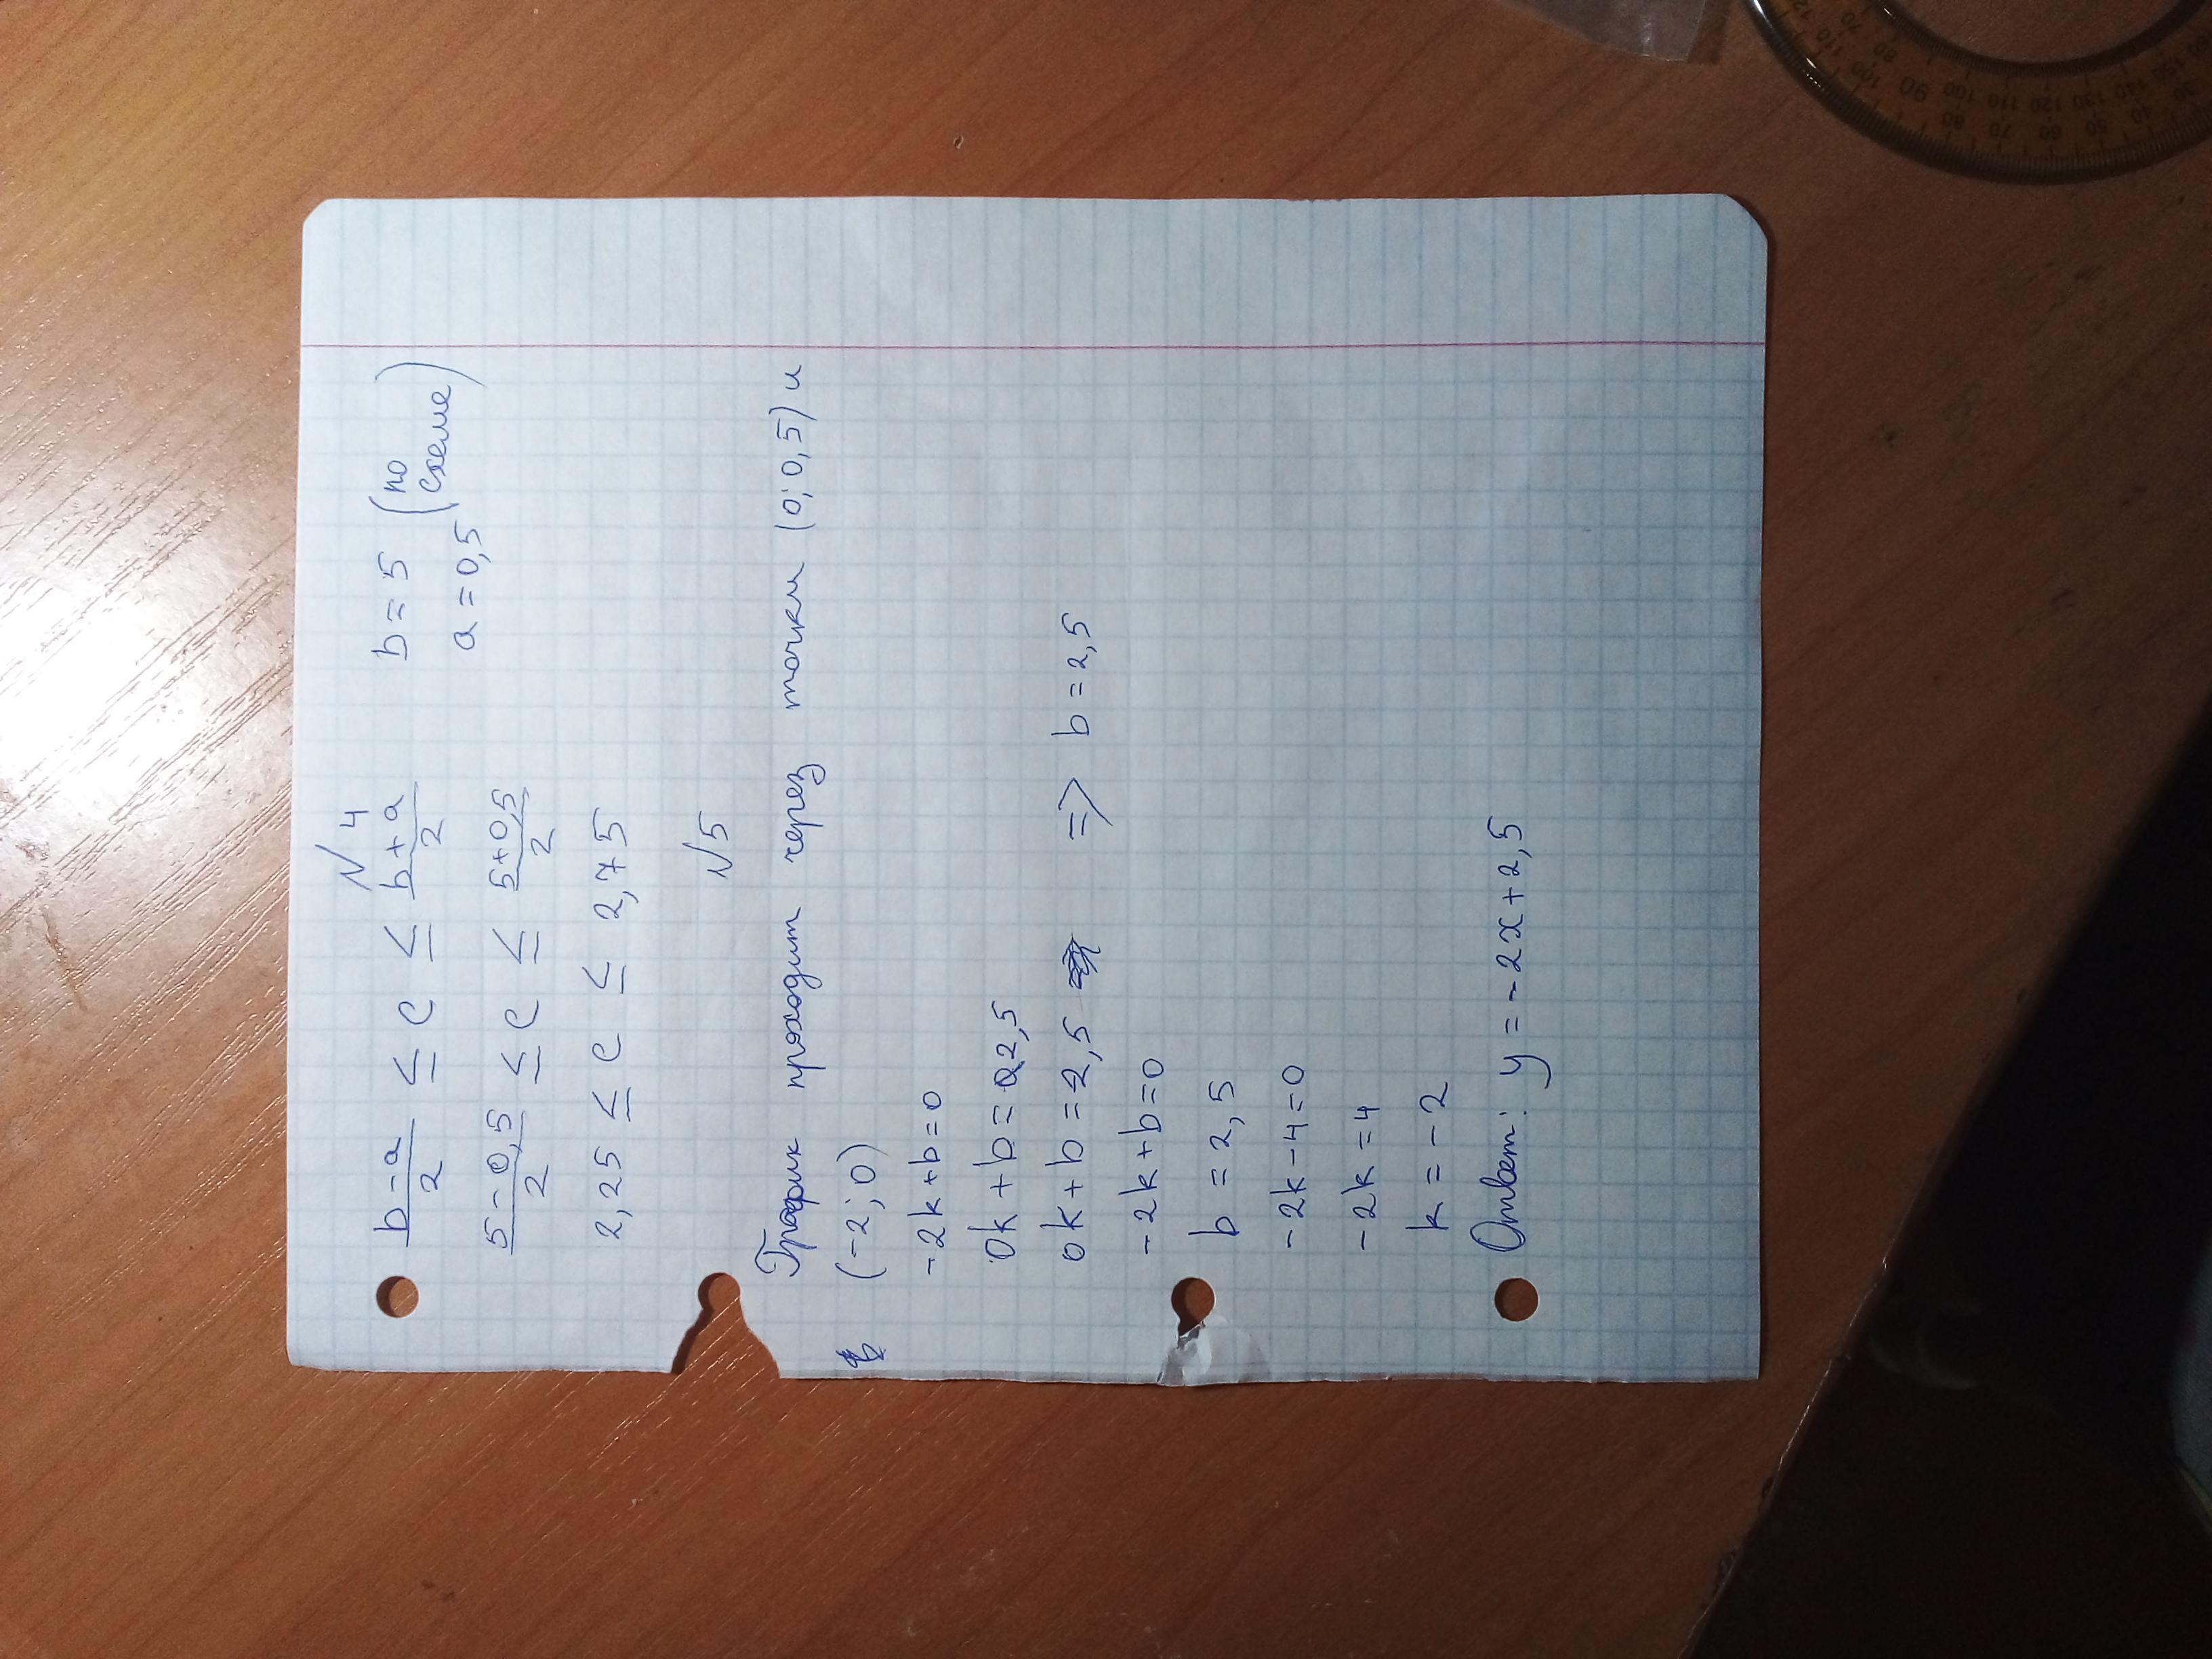 №4
b-a/2 ≤ c ≤ b+a/2 b=5 (по схеме)
a=0,5
5-0,5/2 ≤ c ≤ 5+0,5/2
2,25 ≤ c ≤ 2,75
№5
График проходит через точки (0; 0,5) и
(-2; 0)
-2k+b=0
0k+b=2,5
0k+b=2,5 => b=2,5
-2k+b=0
b=2,5
-2k-4=0
-2k=4
k=-2
Ответ: y=-2x+2,5